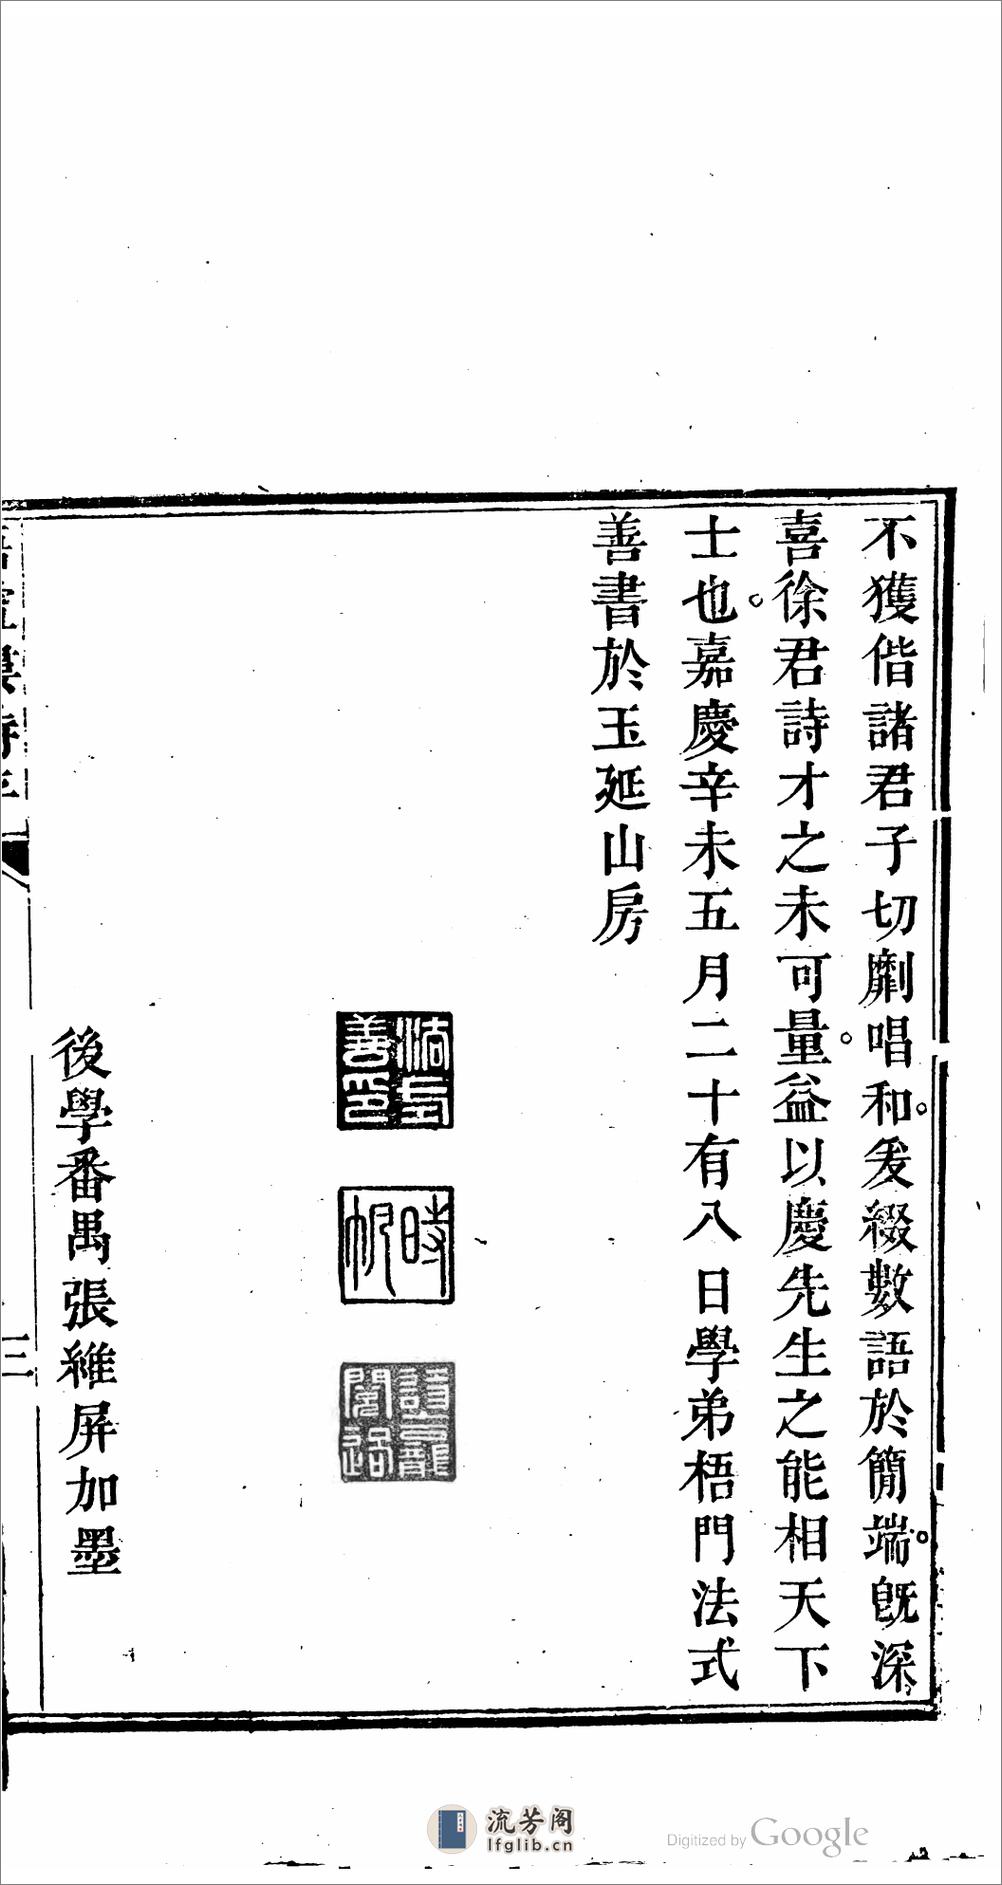 不獲偕諸君子切劘唱和。爰綴數語於簡端。旣深
喜徐君詩才之未可量。益以慶先生之能相天下
士也。嘉慶辛未五月二十有八日學弟梧門法式
善書於玉延山房
法式
善印
時
帆
詩龕
後學番禺張維屏加墨
三
流芳阁
lfglib.cn
Digitized by Google